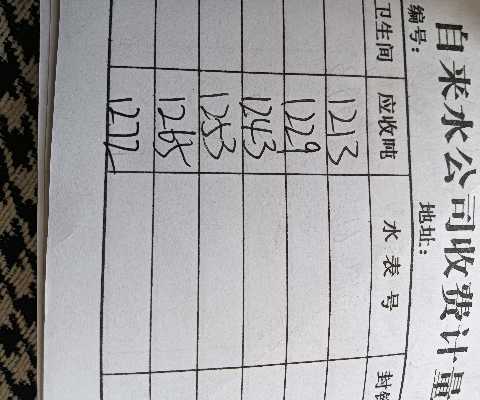 自来水公司收费计量
编号: 地址:
卫生间 应收吨 水表号 封
1213
1229
1243
1253
1265
1272